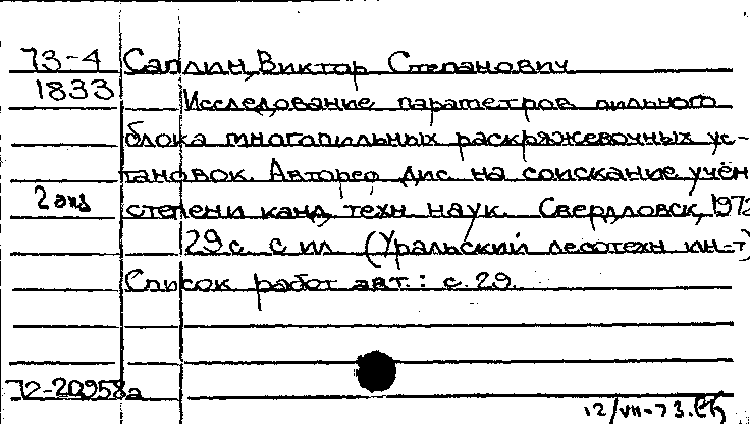 73-4 Саплин, Виктор Степанович
1833 Исследование параметров пильного
блока многопильных раскряжевочных ус-
тановок. Автореф дис. на соискание учён
2 экз степени канд техн наук. Свердловск, 1972
29 с. с ил (Уральский лесотехн ин-т)
Список работ авт.: с. 29.
72-20958а
12/VII-73.